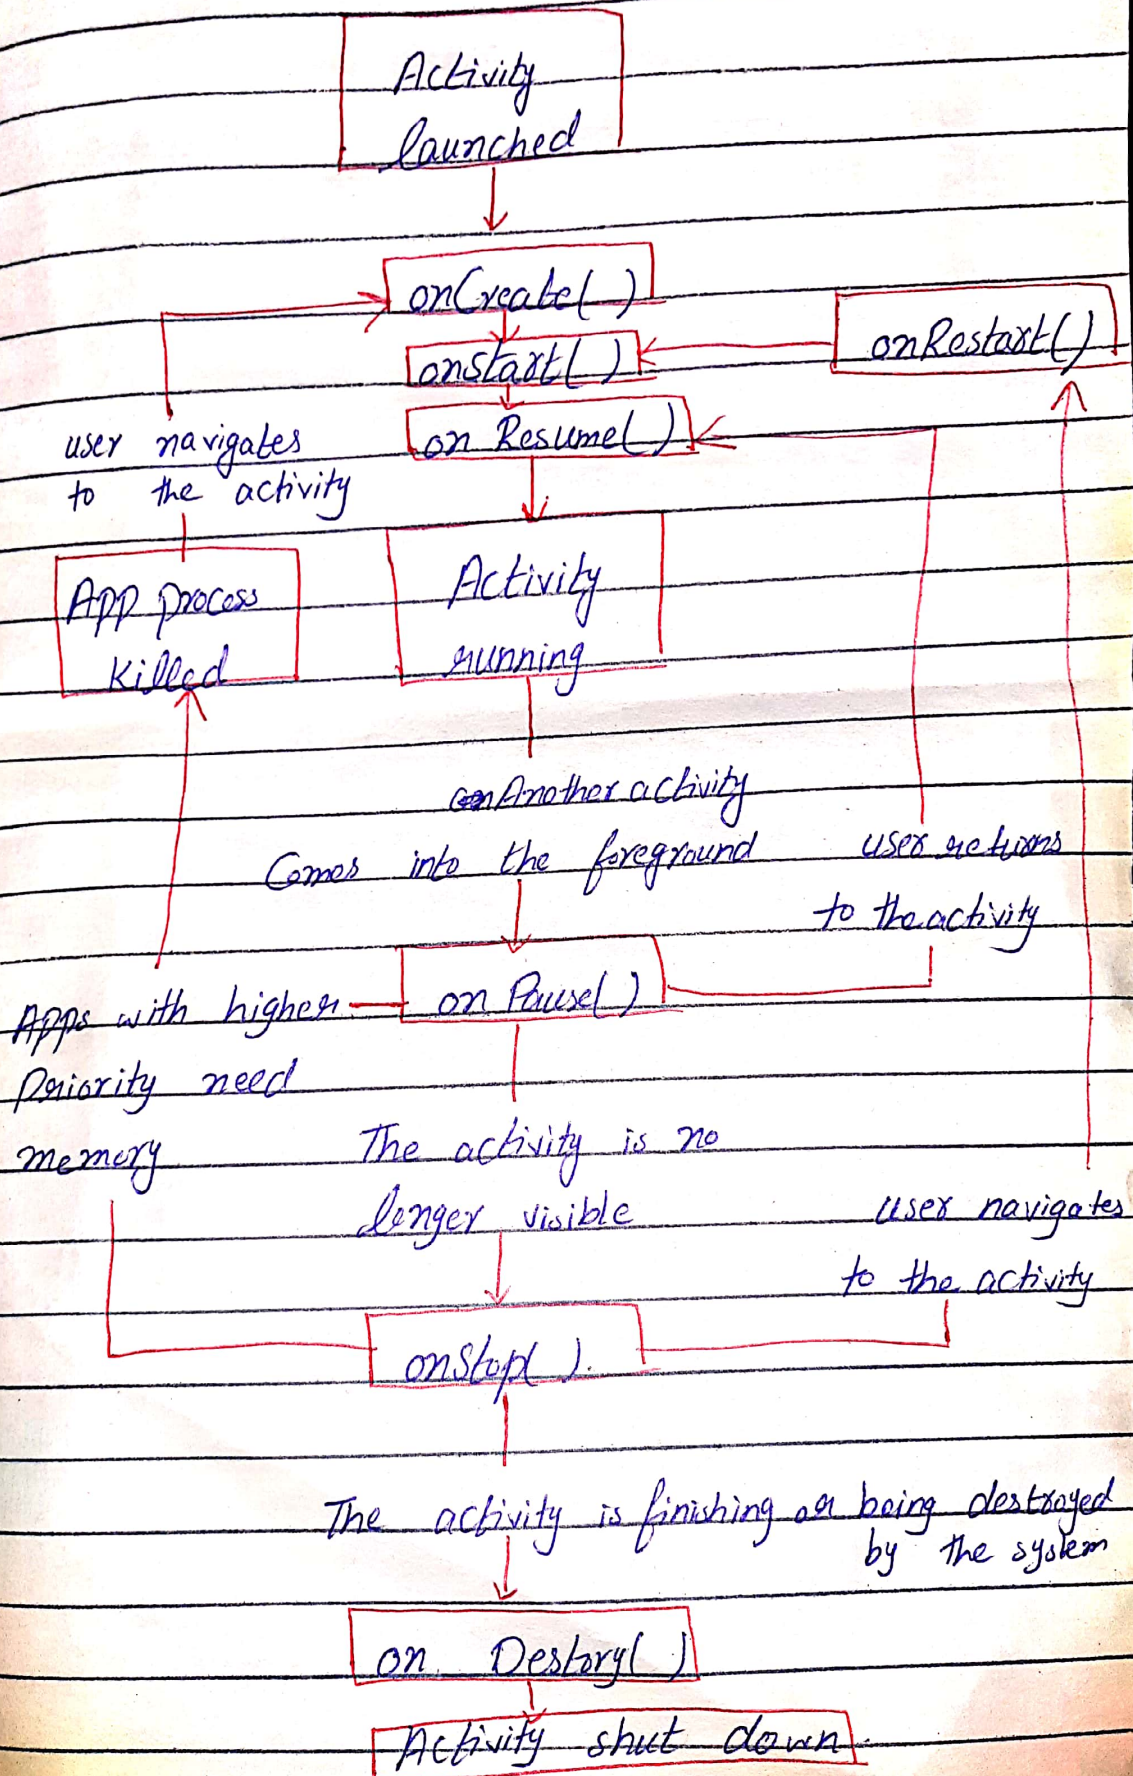 Activity
launched
onCreate( )
onRestart()
onstart( )
on Resume( )
user navigates
to the activity
Activity
running
App process
Killed
Another activity
Comes into the foreground
user returns
to the activity
on Pause( )
Apps with higher
Priority need
memory
The activity is no
longer visible
user navigates
to the activity
onStop( ).
The activity is finishing or being destroyed
by the system
on Destory( )
Activity shut down